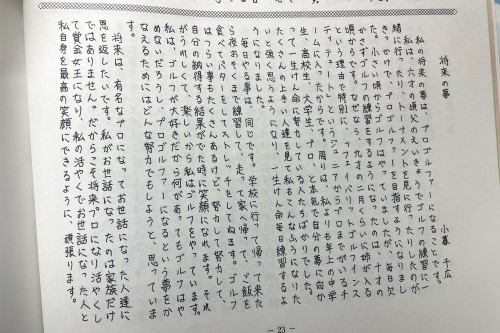 将来の夢
小暮 千広
私の将来の夢は、プロゴルファーになることです。
私は、六才の頃父のえいきょうでゴルフの練習に一
緒に行ったり、トーナメントを見に行ったりしたのが
きっかけで、プロゴルファーを目指すようになりまし
た。小さい頃からゴルフはやっていましたが、毎日欠
かさずゴルフの練習をするようになったのは、十才の
頃からです。なぜなら、九才の二月くらいに姉が入る
という理由で特別に、「ファイブエリアゴルフインス
ティテュート」というジュニアからプロまでがいるチ
ームに入ったからです。周りは、私よりも年上の中学
生、高校生、大学生、プロ、と本気で自分の夢に向か
って一生けん命に努力している人たちばかりでした。
たくさんの上手い人達を見て私もこんなふうになりた
いと強く思うようになり、一生けん命毎日練習するよ
うになりました。
毎日やる事は、同じです。学校に行って帰って来た
ら夜おそくまで練習し、走って家へ帰って、ご飯を
食べパターをしてストレッチをしてねます。ゴルフ
はつらい事もたくさんあるけど、努力して努力して、
自分の納得する結果がでた時に笑顔になれます。それ
がうれしくて、楽しいから私はゴルフをやっています。
私は、ゴルフが大好きだから何があってもゴルフはや
めないだろうし、プロゴルファーになるという夢をか
なえるためにはどんな努力でもしようと、思っていま
す。
将来は、有名なプロになってお世話になった人達に
恩を返したいです。私がお世話になったのは家族だけ
ではありません。だからこそ将来プロになり活やくし
て賞金女王になり、私の活やくでお世話になった人と
私自身を最高の笑顔にできるように、頑張ります。
— 23 —